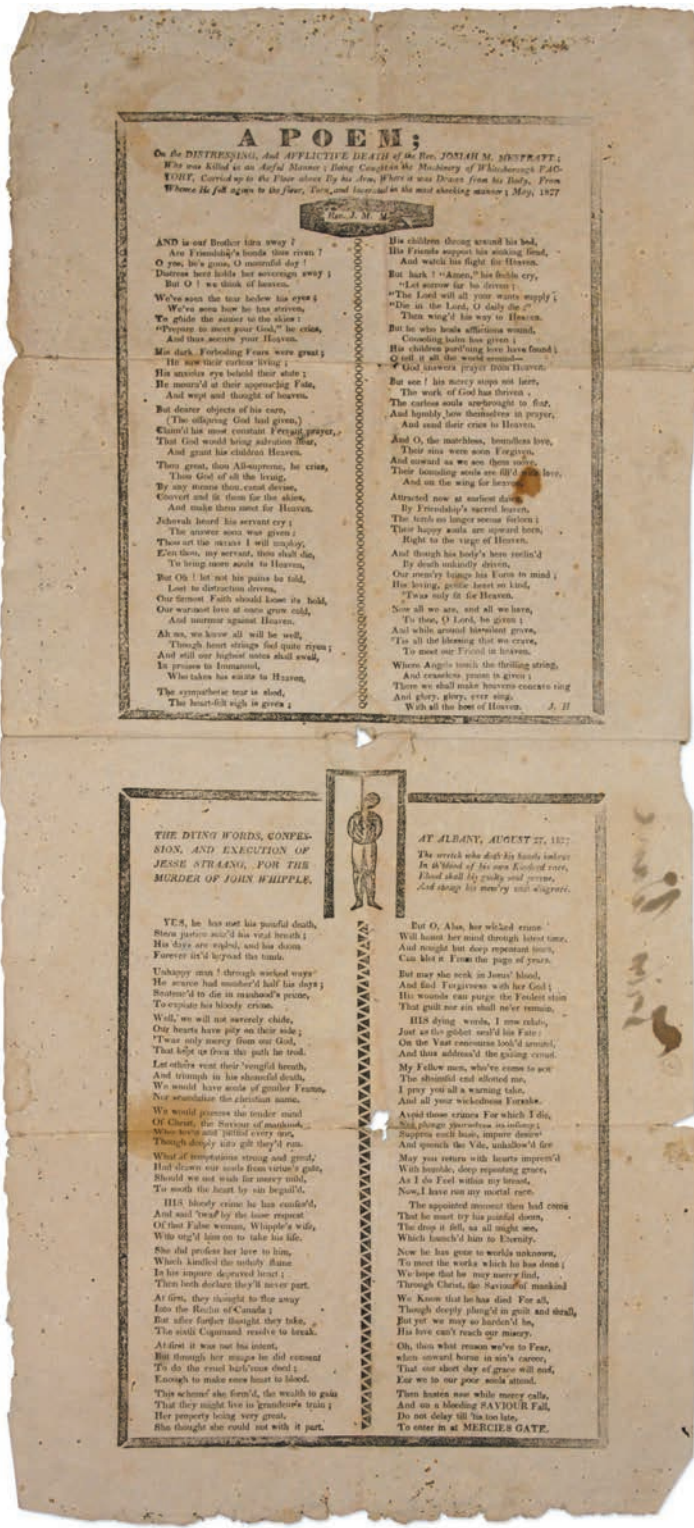 A POEM;
On the DISTRESSING, And AFFLICTIVE DEATH of the Rev. JOSIAH M.
Who was Killed in an Awful Manner; Being Caught in the Machinery of Whitesborough FAC-
TORY, Carried up to the Floor above By his Arm, Where it was Drawn from his Body, From
Whence He fell again to the floor, Torn, and lacerated in the most shocking manner; May, 1827
Rev. J. M. M.
AND is our Brother torn away?
Are Friendship's bonds thus riven?
O yes, he's gone, O mournful day!
Distress here holds her sovereign sway;
But O! we think of heaven.
We've seen the tear bedew his eyes;
We've seen how he has striven,
To guide the sinner to the skies:
"Prepare to meet your God," he cries,
And thus secure your Heaven.
His dark Forboding Fears were great;
He saw their careless living;
His anxious eye beheld their state;
He mourn'd at their approaching Fate,
And wept and thought of heaven.
But dearer objects of his care,
(The offspring God had given,)
Claim'd his most constant Fervant prayer,
That God would bring salvation near,
And grant his children Heaven.
Thou great, thou All-supreme, he cries,
Thou God of all the living,
By any means thou canst devise,
Convert and fit them for the skies,
And make them meet for Heaven.
Jehovah heard his servant cry;
The answer soon was given;
Thou art the means I will employ,
E'en thou, my servant, thou shalt die,
To bring more souls to Heaven.
But Oh! let not his pains be told,
Lest to distraction driven,
Our firmest Faith should loose its hold,
Our warmest love at once grow cold,
And murmur against Heaven.
Ah no, we know all will be well,
Though heart strings feel quite riven;
And still our highest notes shall swell,
In praises to Immanuel,
Who takes his saints to Heaven.
The sympathetic tear is shed,
The heart-felt sigh is given;
His children throng around his bed,
His Friends support his sinking head,
And watch his flight for Heaven.
But hark! "Amen," his feeble cry,
"Let sorrow far be driven;
"The Lord will all your wants supply;
"Die in the Lord, O daily die;"
Then wing'd his way to Heaven.
But he who heals afflictions wound,
Consoling balm has given;
His children pard'ning love have found;
O tell it all the world around—
God answers prayer from Heaven.
But see! his mercy stops not here,
The work of God has thriven.
The careless souls are brought to fear,
And humbly bow themselves in prayer,
And send their cries to Heaven.
And O, the matchless, boundless love,
Their sins were soon Forgiven,
And onward as we see them move,
Their bounding souls are fill'd with love,
And on the wing for heaven.
Attracted now at earliest dawn
By Friendship's sacred leaven,
The tomb no longer seems forlorn;
Their happy souls are upward born,
Right to the verge of Heaven.
And though his body's here
By death unkindly driven,
Our mem'ry brings his Form to mind;
His loving, gentle heart so kind,
'Twas only fit for Heaven.
Now all we are, and all we have,
To thee, O Lord, be given;
And while around his silent grave,
'Tis all the blessing that we crave,
To meet our Friend in heaven.
Where Angels touch the thrilling string,
And ceaseless praise is given;
There we shall make heavens concave ring
And glory, glory, ever sing,
With all the host of Heaven. J. H
THE DYING WORDS, CONFES-
SION, AND EXECUTION OF
JESSE STRAANG, FOR THE
MURDER OF JOHN WHIPPLE,
AT ALBANY, AUGUST 27, 1827
The wretch who doth his hands imbrue
In th'blood of his own Kindred race,
Blood shall his guilty soul pursue,
And stamp his mem'ry with disgrace.
YES, he has met his painful death,
Stern justice seiz'd his vital breath;
His days are ended, and his doom
Forever fix'd beyond the tomb.
Unhappy man! through wicked ways
He scarce had number'd half his days;
Sentenc'd to die in manhood's prime,
To expiate his bloody crime.
Well, we will not severely chide,
Our hearts have pity on their side;
'Twas only mercy from our God,
That kept us from the path he trod.
Let others vent their 'vengful breath,
And triumph in his shameful death,
We would have souls of gentler Frame,
Nor scandalize the christian name.
We would possess the tender mind
Of Christ, the Saviour of mankind,
Who lov'd and pitied every one,
Though deeply into guilt they'd run.
What if temptations strong and great,
Had drawn our souls from virtue's gate,
Should we not wish for mercy mild,
To sooth the heart by sin beguil'd.
HIS bloody crime he has confess'd,
And said 'twas by the base request
Of that False woman, Whipple's wife,
Who urg'd him on to take his life.
She did profess her love to him,
Which kindled the unholy flame
In his impure depraved heart;
Then both declare they'll never part.
At first, they thought to flee away
Into the Realm of Canada;
But after further thought they take,
The sixth Command resolve to break.
At first it was not his intent,
But through her magic he did consent
To do the cruel barb'rous deed;
Enough to make ones heart to bleed.
This scheme she form'd, the wealth to gain
That they might live in grandeur's train;
Her property being very great,
She thought she could not with it part.
But O, Alas, her wicked crime
Will haunt her mind through latest time,
And nought but deep repentant tears,
Can blot it From the page of years.
But may she seek in Jesus' blood,
And find Forgiveness with her God;
His wounds can purge the Foulest stain
That guilt nor sin shall ne'er remain.
HIS dying words, I now relate,
Just as the gibbet seal'd his Fate;
On the Vast concourse look'd around,
And thus address'd the gazing crowd.
My Fellow men, who've come to see
The shameful end allotted me,
I pray you all a warning take,
And all your wickedness Forsake.
Avoid those crimes For which I die,
Nor plunge yourselves in infamy;
Suppress each base, impure desire
And quench the Vile, unhallow'd fire
May you return with hearts impress'd
With humble, deep repenting grace,
As I do Feel within my breast,
Now, I have run my mortal race.
The appointed moment then had come
That he must try his painful doom,
The drop it fell, as all might see,
Which launch'd him to Eternity.
Now he has gone to worlds unknown,
To meet the works which he has done;
We hope that he may mercy find,
Through Christ, the Saviour of mankind
We Know that he has died For all,
Though deeply plung'd in guilt and thrall,
But yet we may so harden'd be,
His love can't reach our misery.
Oh, then what reason we've to Fear,
when onward borne in sin's career,
That our short day of grace will end,
For we to our poor souls attend.
Then hasten now while mercy calls,
And on a bleeding SAVIOUR Fall,
Do not delay till 'tis too late,
To enter in at MERCIES GATE.